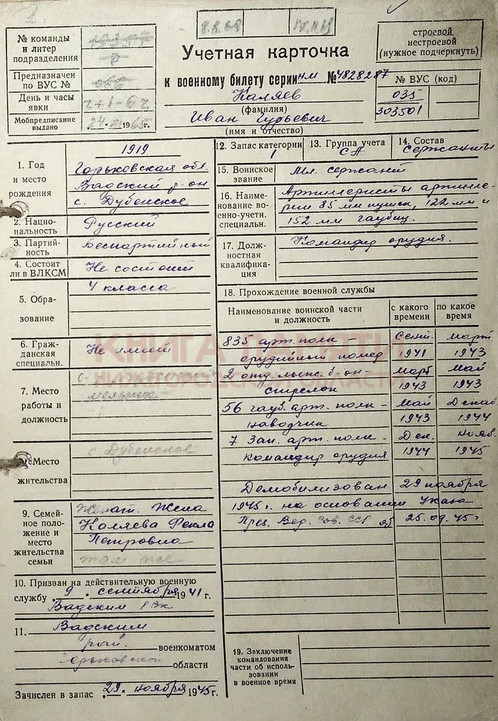 1.
8.8.68
№ команды
и литер
подразделения
Предназначен
по ВУС №
966
День и часы
явки
2+1-62
Мобпредписание
выдано
24. III 1965 г.
строевой
нестроевой
(нужное подчеркнуть)
Учетная карточка
к военному билету серии НМ № 4828287
Каляев
(фамилия)
Иван Гурьевич
(имя и отчество)
№ ВУС (код)
035
303501
12. Запас категории 1
13. Группа учета СА
14. Состав Сержанты
15. Воинское
звание
Мл. сержант
16. Наимено-
вание во-
енно-учетн.
специальн.
Артиллеристы артилле-
рии 85 мм пушек, 122 мм и
152 мм гаубиц.
17. Долж-
ностная
квалифика-
ция
Командир орудия.
1. Год
и место
рождения
1919
Горьковская обл.
Вадский р-он
с. Дубенское
2. Нацио-
нальность
Русский
3. Партий-
ность
Беспартийный
4. Состоит
ли в ВЛКСМ
Не состоит
5. Обра-
зование
4 класса
6. Граж-
данская
специальн.
Не имеет
7. Место
работы и
должность
мельник
8. Место
жительства
с. Дубенское
9. Семей-
ное по-
ложение и
место
жительства
семьи
Женат. Жена
Каляева Фекла
Петровна
там же
10. Призван на действительную военную
службу 9 сентября 1941 г.
Вадским РВК
11. Вадским
рай. военкоматом
Горьковской области
Зачислен в запас 29 ноября 1945 г.
18. Прохождение военной службы
Наименование воинской части
и должность
с какого
времени
по какое
время
835 арт. полк Сент. март
орудийный номер 1941 1943
2 отд. лыж. б-он март май
стрелок 1943 1943
56 гауб. арт. полк - май Декаб
наводчик 1943 1944
7 Зап. арт. полк - Дек. нояб.
командир орудия 1944 1945
Демобилизован 29 ноября
1945 г. на основании Указа
През. Вер. Сов. СССР от 25.09.45 г.
19. Заключение
командования
части об исполь-
зовании
в военное время
КНИГА ПАМЯТИ
НИЖЕГОРОДСКОЙ ОБЛАСТИ